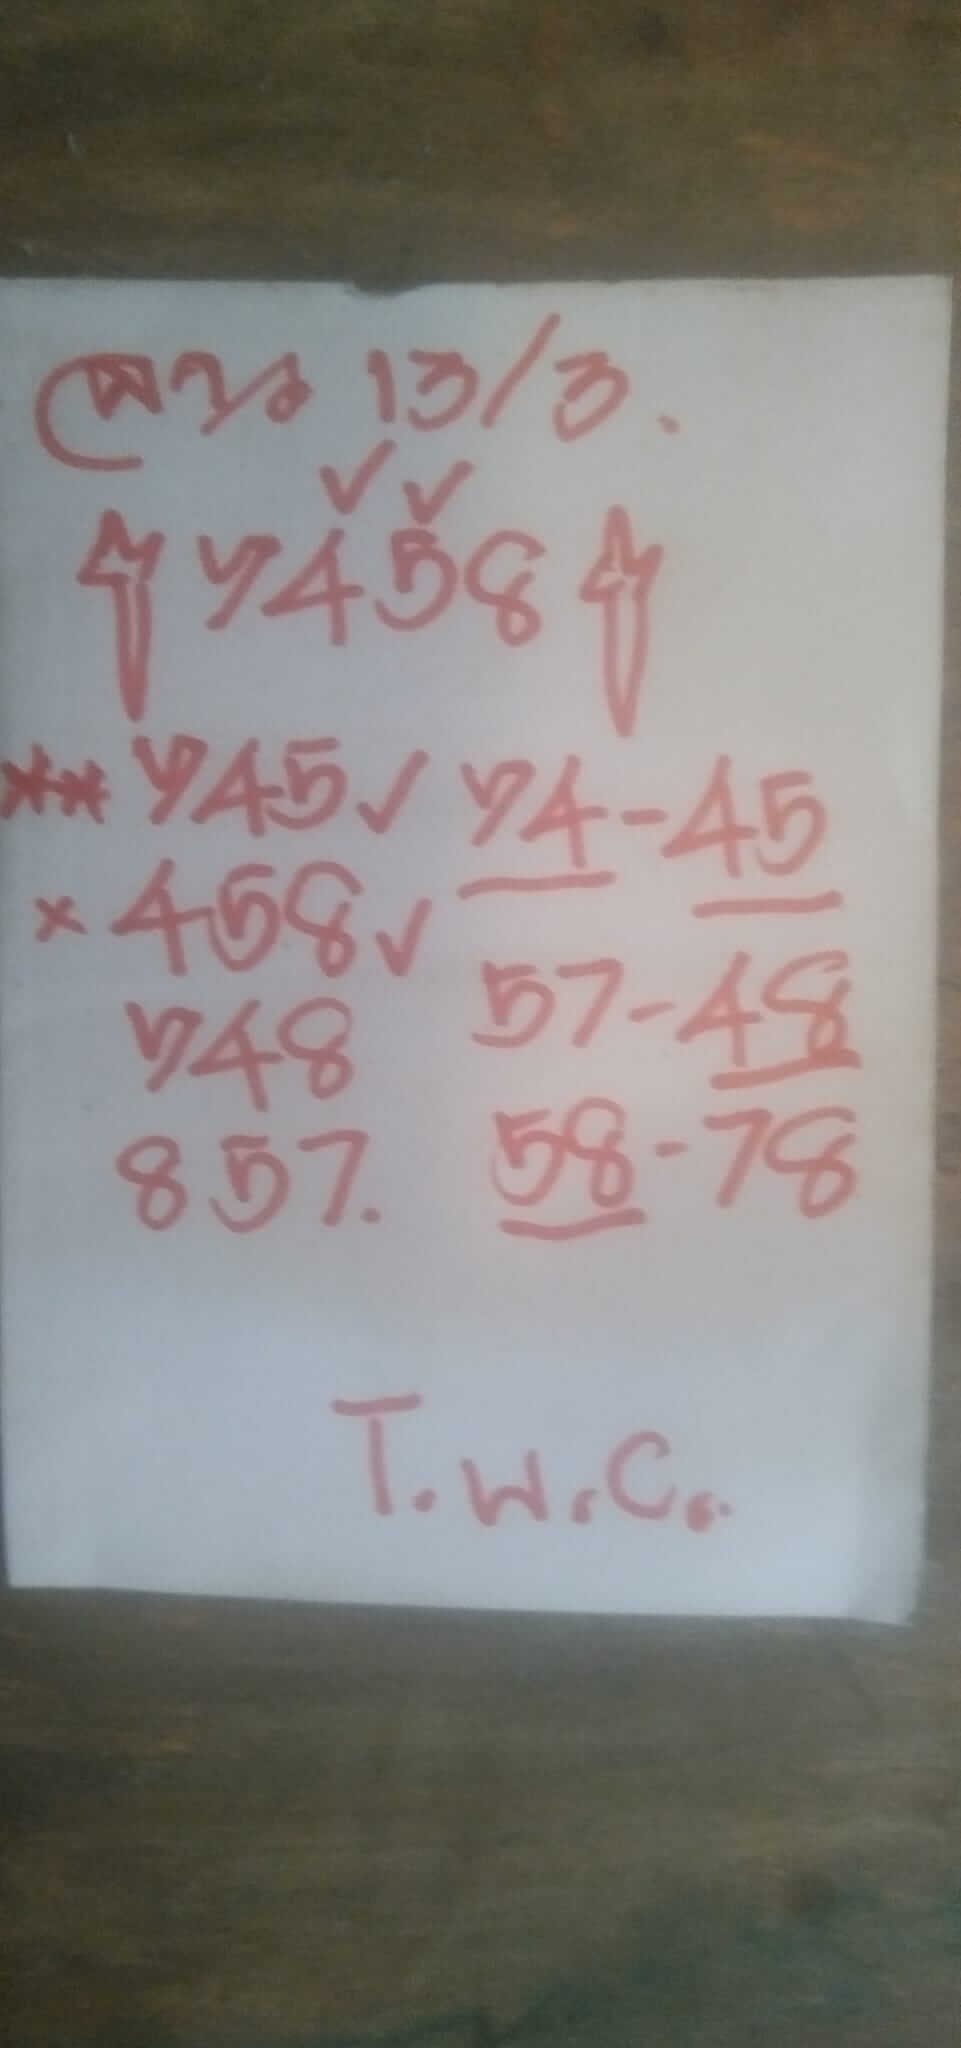 ลาว 13/3.
✓✓
7458
** 745✓ 74-45
× 458✓
748 57-48
857. 58-78
T.W.C.